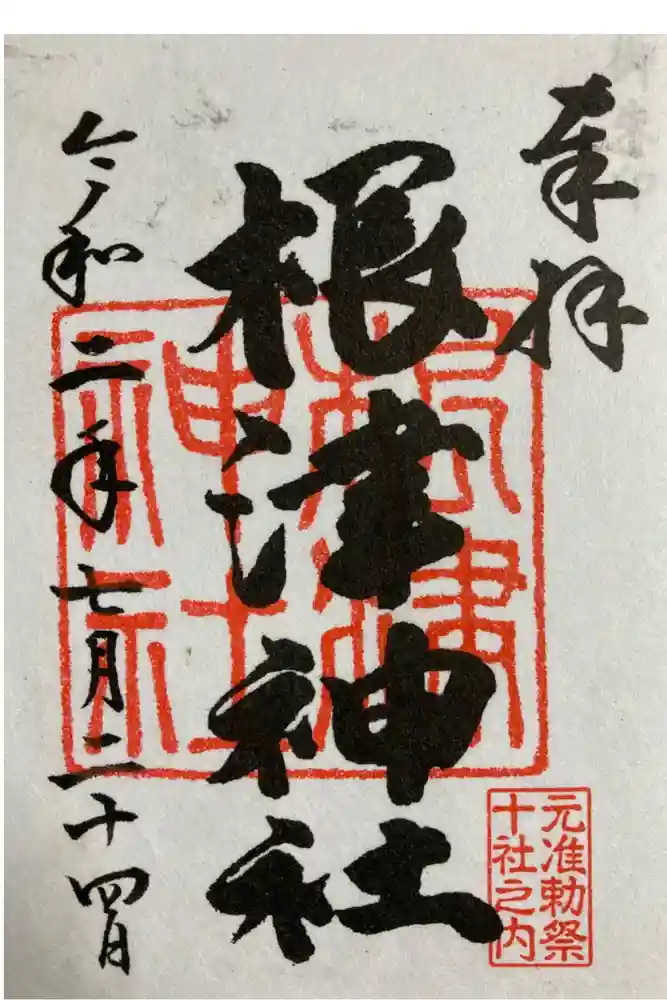 奉拝
根津神社
根津神社
元准勅祭
十社之内
令和二年七月二十四日